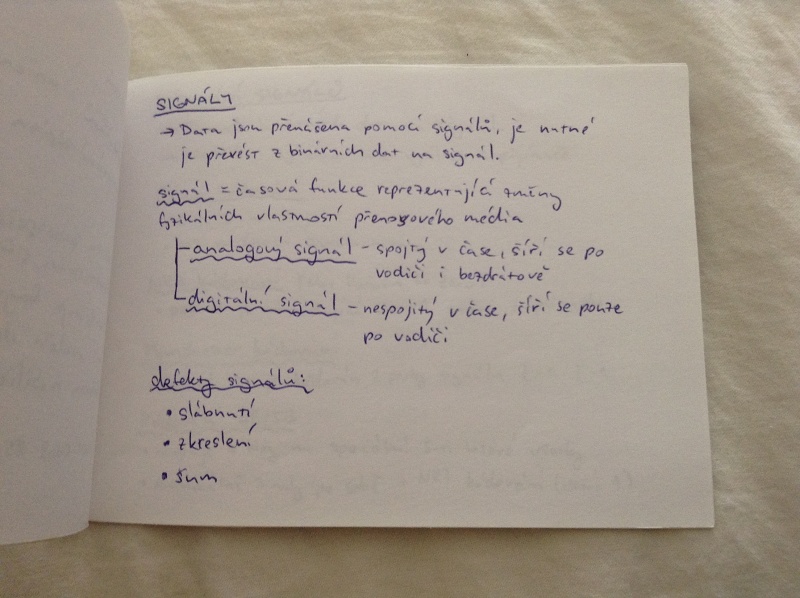 SIGNÁLY
→ Data jsou přenášena pomocí signálů, je nutné
je převést z binárních dat na signál.
signál = časová funkce reprezentující změny
fyzikálních vlastností přenosového média
analogový signál - spojitý v čase, šíří se po
vodiči i bezdrátově
digitální signál - nespojitý v čase, šíří se pouze
po vodiči
defekty signálů:
• slábnutí
• zkreslení
• šum